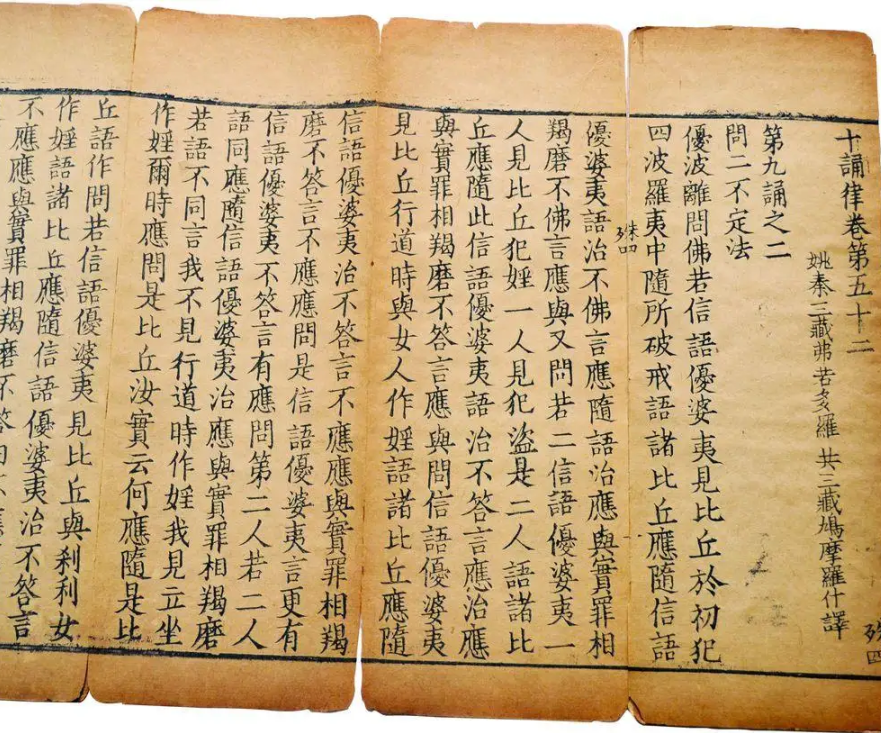 十誦律卷第五十二
殊四
姚秦三藏弗若多羅 共三藏鳩摩羅什譯
第九誦之二
問二不定法
優波離問佛若信語優婆夷見比丘於初犯
四波羅夷中隨所破戒語諸比丘應隨信語
殊四
優婆夷語治不佛言應隨語治應與實罪相
羯磨不佛言應與又問若二信語優婆夷一
人見比丘犯婬一人見犯盜是二人語諸比
丘應隨此信語優婆夷語治不答言應治應
與實罪相羯磨不答言應與問信語優婆夷
見比丘行道時與女人作婬語諸比丘應隨
信語優婆夷治不答言不應應與實罪相羯
磨不答言不應應問是信語優婆夷言更有
信語優婆夷不答言有應問第二人若二人
語同應隨信語優婆夷治應與實罪相羯磨
若語不同言我不見行道時作婬我見立坐
作婬爾時應問是比丘汝實云何應隨是比
丘語作問若信語優婆夷見比丘與剎利女
作婬語諸比丘應隨信語優婆夷治不答言
不應應與實罪相羯磨不答